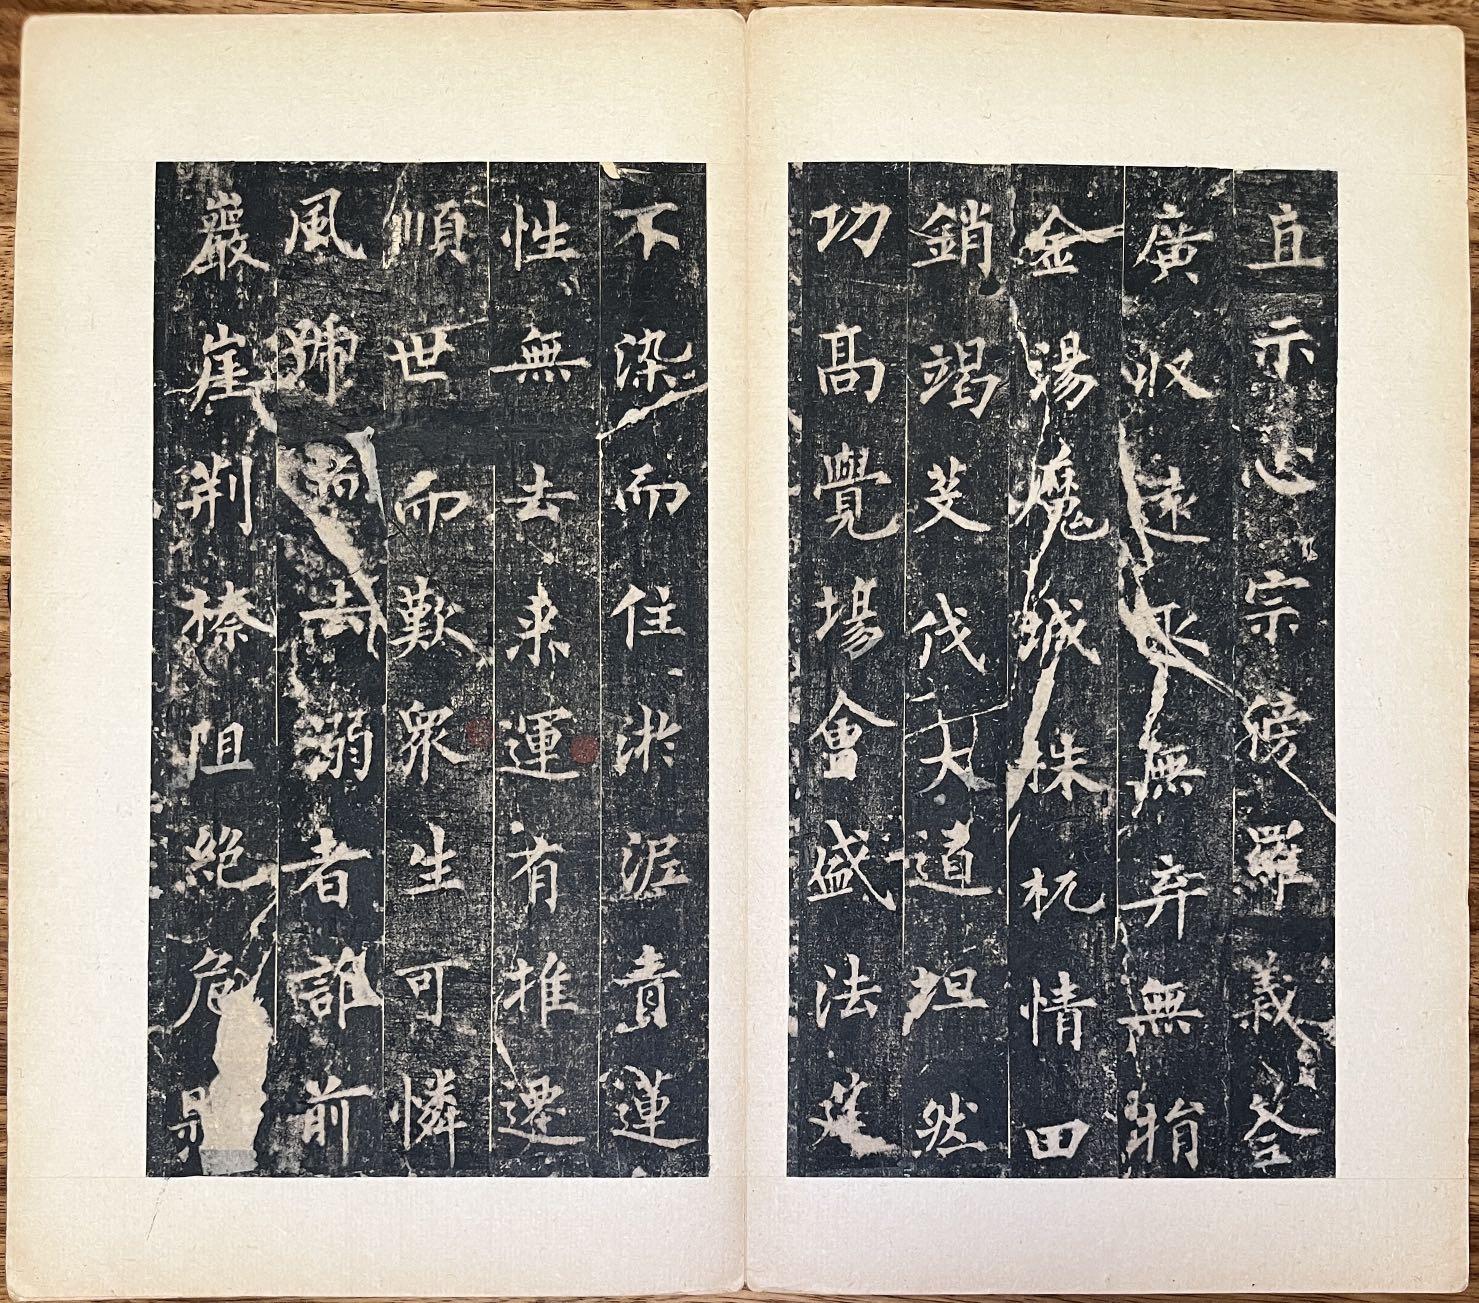 直示心宗傍羅義筌
廣收遠取無弃無捐
金湯魔城株杌情田
銷竭芟伐大道坦然
功高覺場會盛法筵
不染而住淤泥青蓮
性無去来運有推遷
順世而歎眾生可憐
風號去溺者誰前
巖崖荆榛阻絶危